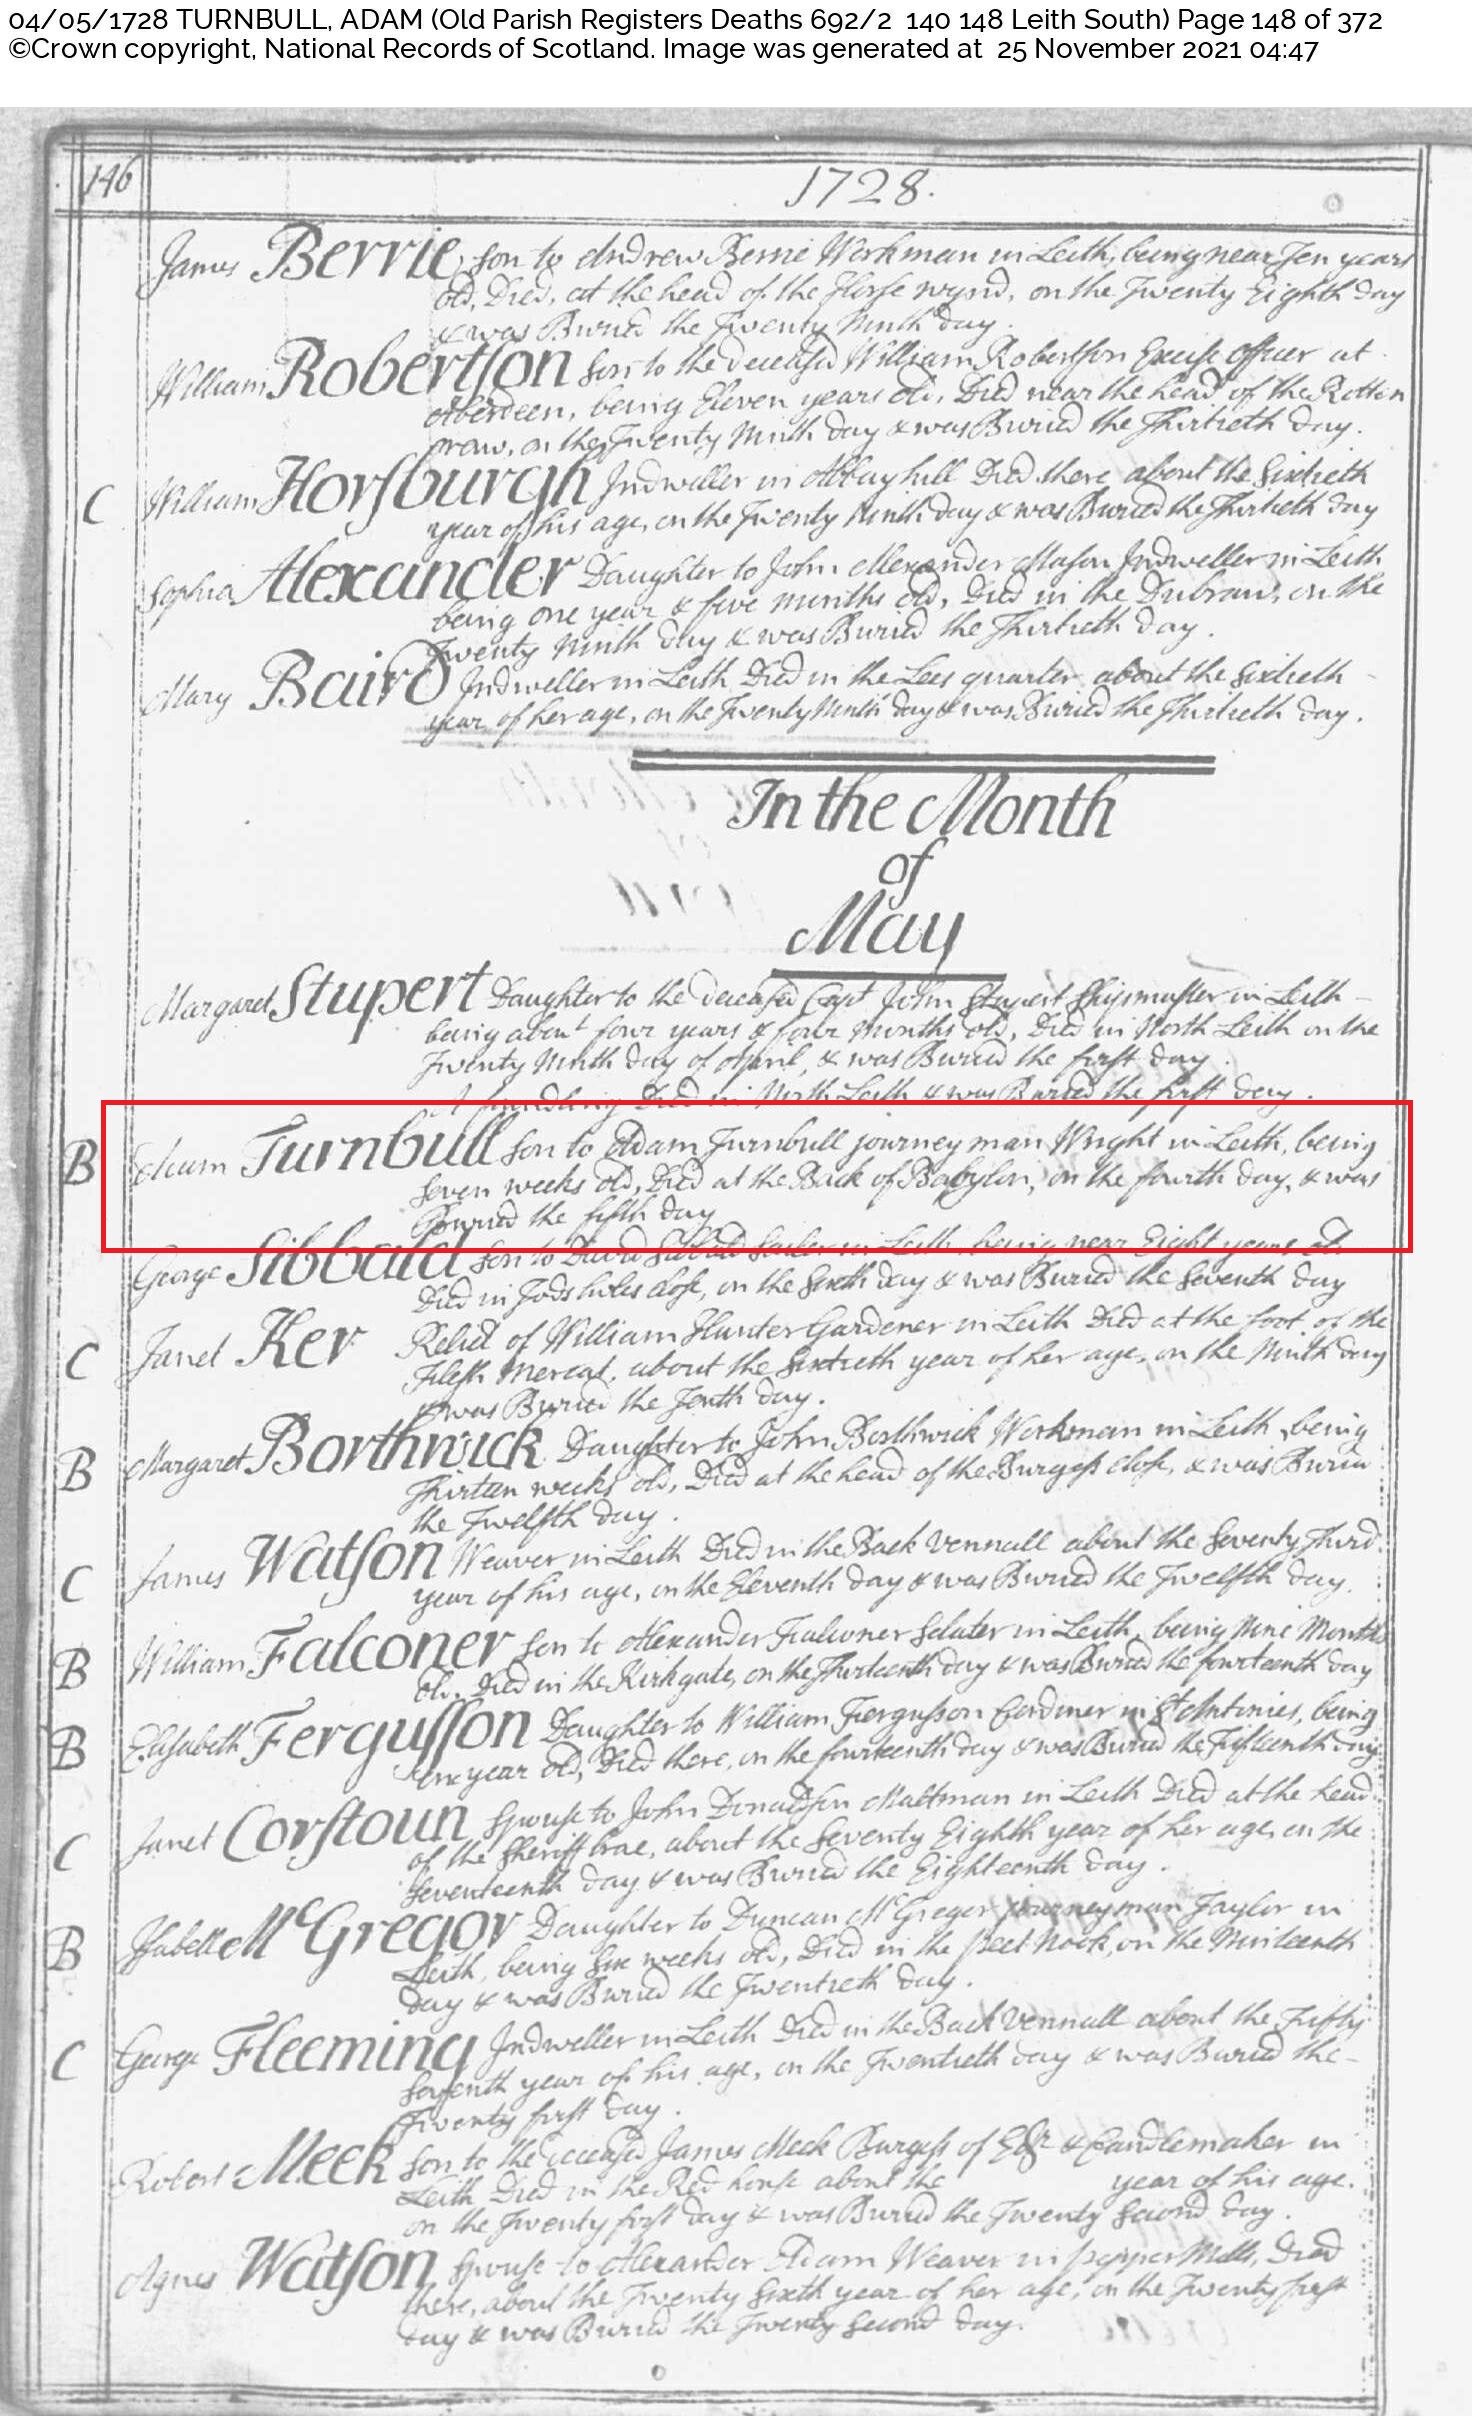 04/05/1728 TURNBULL, ADAM (Old Parish Registers Deaths 692/2 140 148 Leith South) Page 148 of 372
©Crown copyright, National Records of Scotland. Image was generated at 25 November 2021 04:47
146
1728.
James Berrie, son to Andrew Berrie Workman in Leith, being near Ten years
old, Died, at the head of the Horse wynd, on the Twenty Eighth day
& was Buried the Twenty Ninth day.
William Robertson son to the deceased William Robertson Excise officer at
Aberdeen, being Eleven years old, Died near the head of the Rotten
row, on the Twenty Ninth day & was Buried the Thirtieth day.
C William Horsburgh Indweller in Abbayhill Died there about the Sixtieth
year of his age, on the Twenty Ninth day & was Buried the Thirtieth day
Sophia Alexander Daughter to John Alexander Mason Indweller in Leith
being one year & five months old, Died in the Dubraw, on the
Twenty Ninth day & was Buried the Thirtieth day.
Mary Baird Indweller in Leith Died in the Lees quarter about the Sixtieth
year of her age, on the Twenty Ninth day & was Buried the Thirtieth day.
In the Month
of
May
Margaret Stupert Daughter to the deceased Capt John Stupert Shipmaster in Leith
being about four years & four months old, Died in North Leith on the
Twenty Ninth day of April, & was Buried the first day.
A foundling Died in North Leith & was Buried the first day.
B Adam Turnbull son to Adam Turnbull journeyman Wright in Leith, being
seven weeks old, Died at the Back of Babylon, on the fourth day, & was
Buried the fifth day
George Sibbald son to David Sibbald Sailer in Leith, being near Eight years old
Died in close, on the Sixth day & was Buried the Seventh day
C Janet Ker Relict of William Hunter Gardener in Leith Died at the foot of the
Flesh Mercat, about the Sixtieth year of her age, on the Ninth day
& was Buried the Tenth day.
B Margaret Borthwick Daughter to John Borthwick Workman in Leith, being
Thirteen weeks old, Died at the head of the Burgess close, & was Buried
the Twelfth day.
C James Watson Weaver in Leith Died in the Back Vennall about the Seventy Third
year of his age, on the Eleventh day & was Buried the Twelfth day.
B William Falconer son to Alexander Falconer Sclater in Leith, being Nine Months
old, Died in the Kirkgate, on the Thirteenth day & was Buried the fourteenth day
B Elisabeth Fergusson Daughter to William Fergusson Gardiner in St Antonies, being
one year old, Died there, on the fourteenth day & was Buried the Fifteenth day
C Janet Corstoun Spouse to John Donaldson Maltman in Leith Died at the head
of the Sheriff brae, about the Seventy Eighth year of her age, on the
Seventeenth day & was Buried the Eighteenth day.
B Isabell McGregor Daughter to Duncan McGregor journeyman Taylor in
Leith, being Six weeks old, Died in the peet Nook, on the Ninteenth
day & was Buried the Twentieth day.
C George Fleeming Indweller in Leith Died in the Back Vennall about the Fifty
Seventh year of his age, on the Twentieth day & was Buried the
Twenty first day.
Robert Meek son to the deceased James Meek Burgess of Edr & Candlemaker in
Leith Died in the Red house about the year of his age.
on the Twenty first day & was Buried the Twenty Second day.
Agnes Watson Spouse to Alexander Adam Weaver in pepper Mills, Died
there, about the Twenty Sixth year of her age, on the Twenty first
day & was Buried the Twenty Second day.